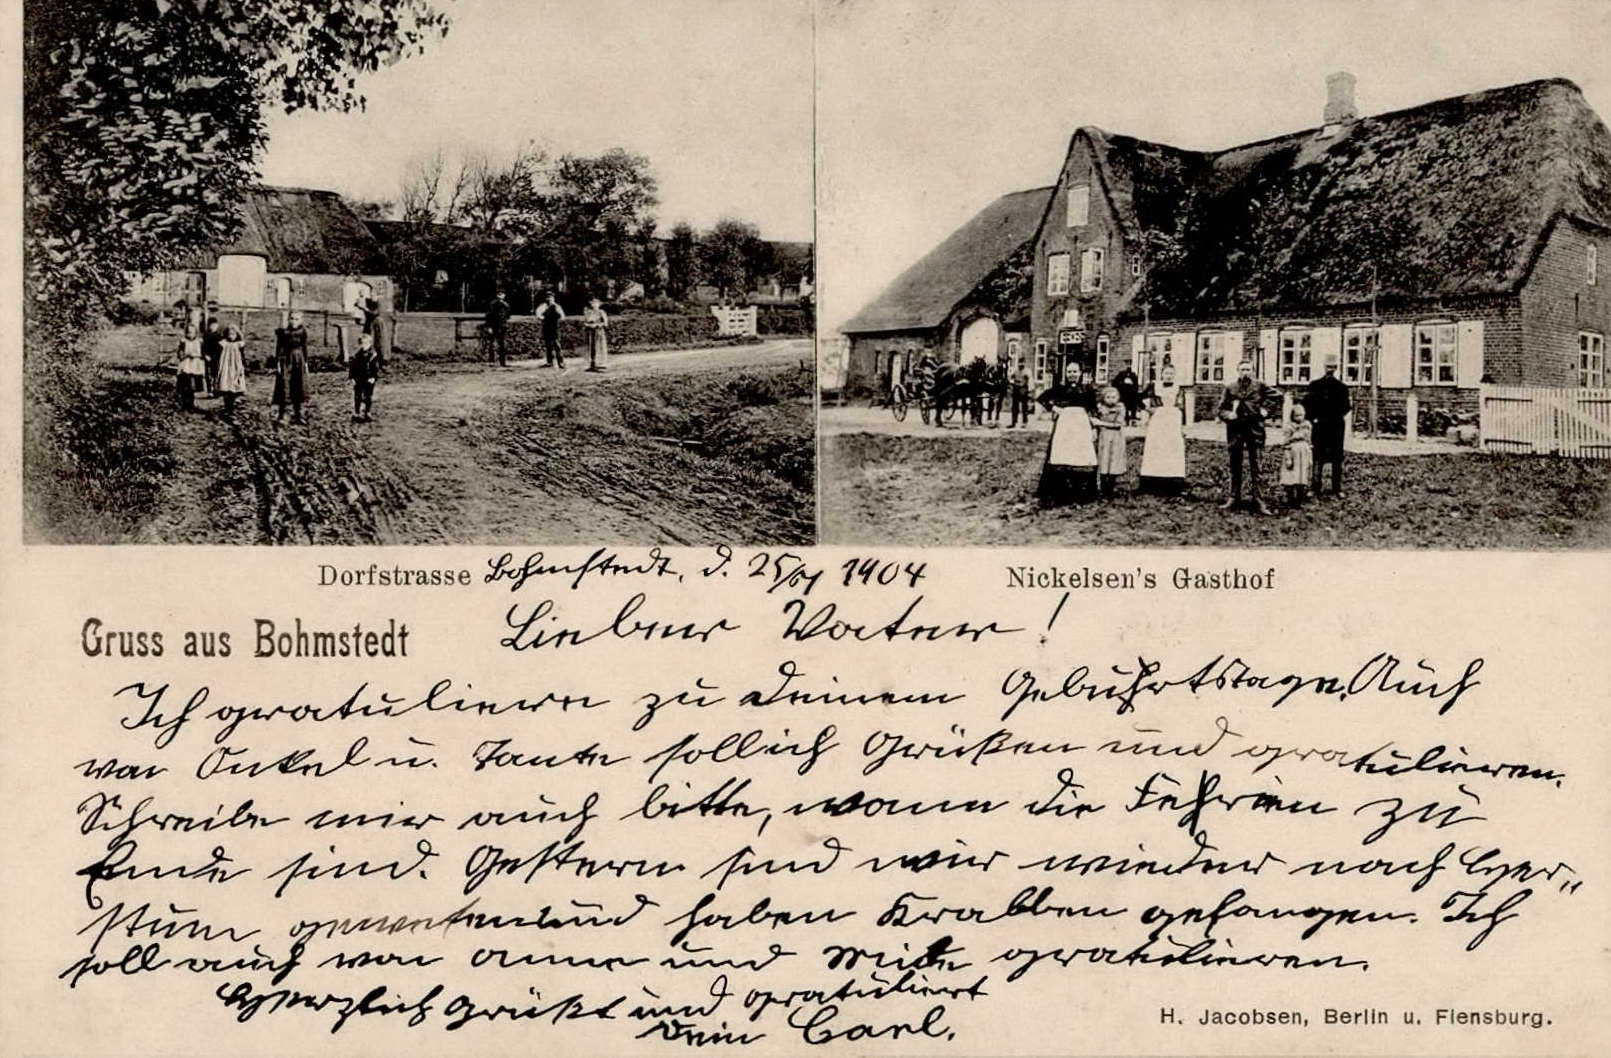 Dorfstrasse Bohmstedt, d. 25/ 1904 Nickelsen's Gasthof
Gruss aus Bohmstedt
Lieber Vater!
Ich gratuliere zu Deinem Gebuhrtstage. Auch
von Onkel u. Tante soll ich Grüßen und gratulieren.
Schreibe mir auch bitte, wann die Fehrien zu
Ende sind. Gestern sind wir wieder nach
gewesen und haben Krabben gefangen. Ich
soll auch von und gratulieren.
Herzlich Grüßt und gratuliert
Dein Carl.
H. Jacobsen, Berlin u. Flensburg.